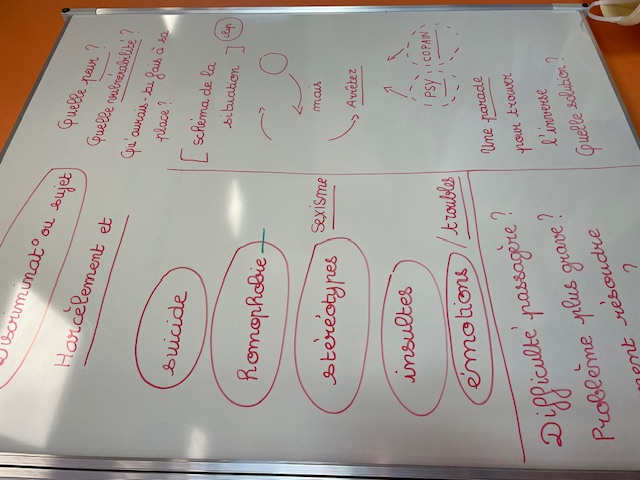 Discriminat° ou sujet
Harcèlement et
suicide
homophobie
sexisme
stéréotypes
insultes
émotions / troubles
Difficulté passagère ?
Problème plus grave ?
ment résoudre
?
Quelle peur ?
Quelle vulnérabilité ?
Qu'aurais-tu fais à sa
place ?
[ Schéma de la
situation ]
mais
Arrêtez
PSY COPAIN
Une parade
pour trouver
l'inverse
Quelle solution ?